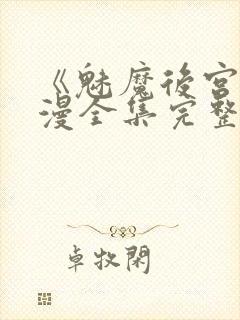 《魅魔後宮
漫全集完整
卓牧閑